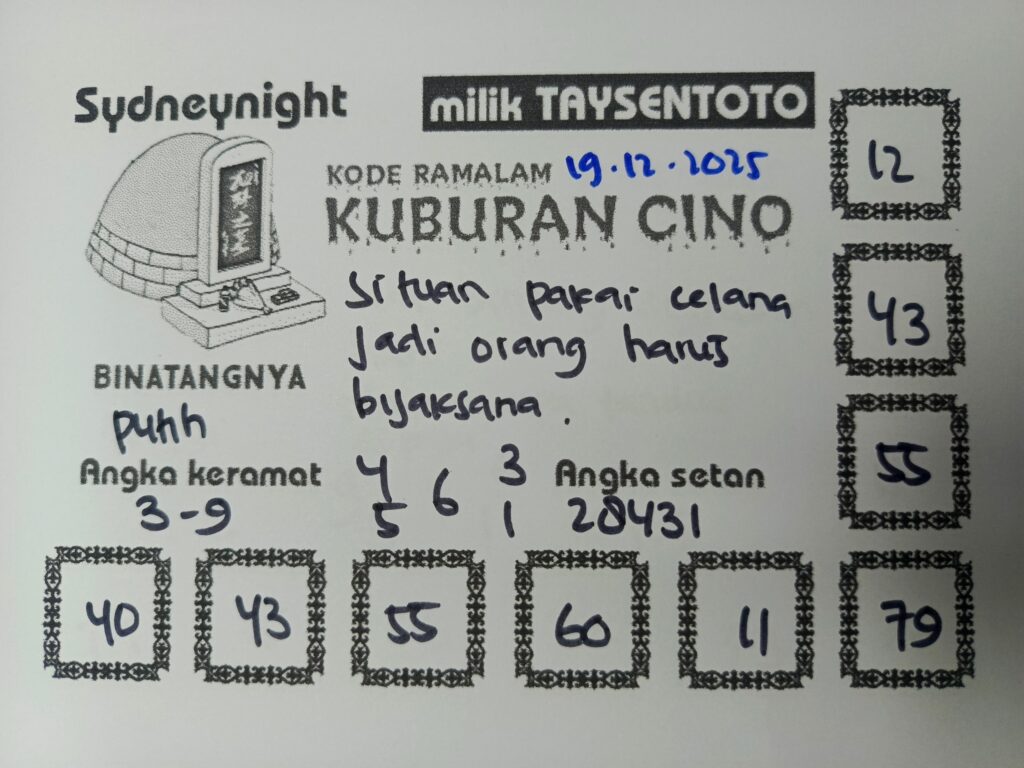 Sydneynight
milik TAYSENTOTO
KODE RAMALAM 19.12.2025
KUBURAN CINO
Si tuan pakai celana
Jadi orang harus
bijaksana.
BINATANGNYA
Angka keramat
3-9
4 6 3
5 1
Angka setan
28431
12
43
55
40 43 55 60 11 79